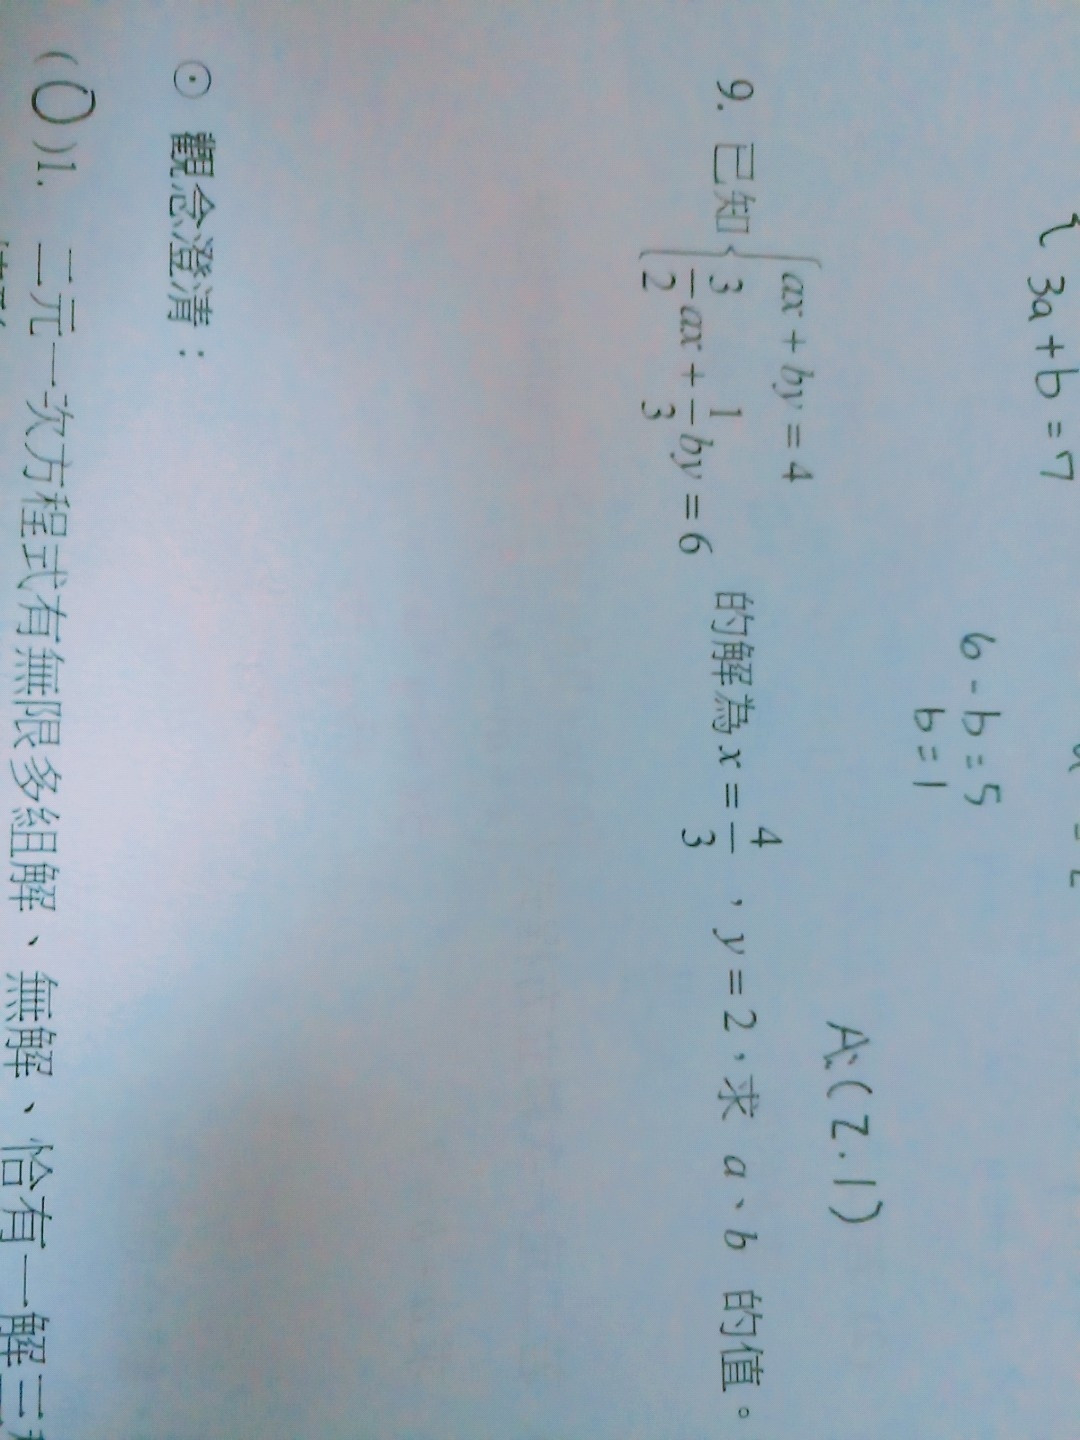 { 3a+b=7
6-b=5
b=1
A:(2.1)
9. 已知 { ax + by = 4
3/2 ax + 1/3 by = 6 的解為 x = 4/3 , y = 2,求 a、b 的值。
⊙ 觀念澄清:
(O)1. 二元一次方程式有無限多組解、無解、恰有一解三